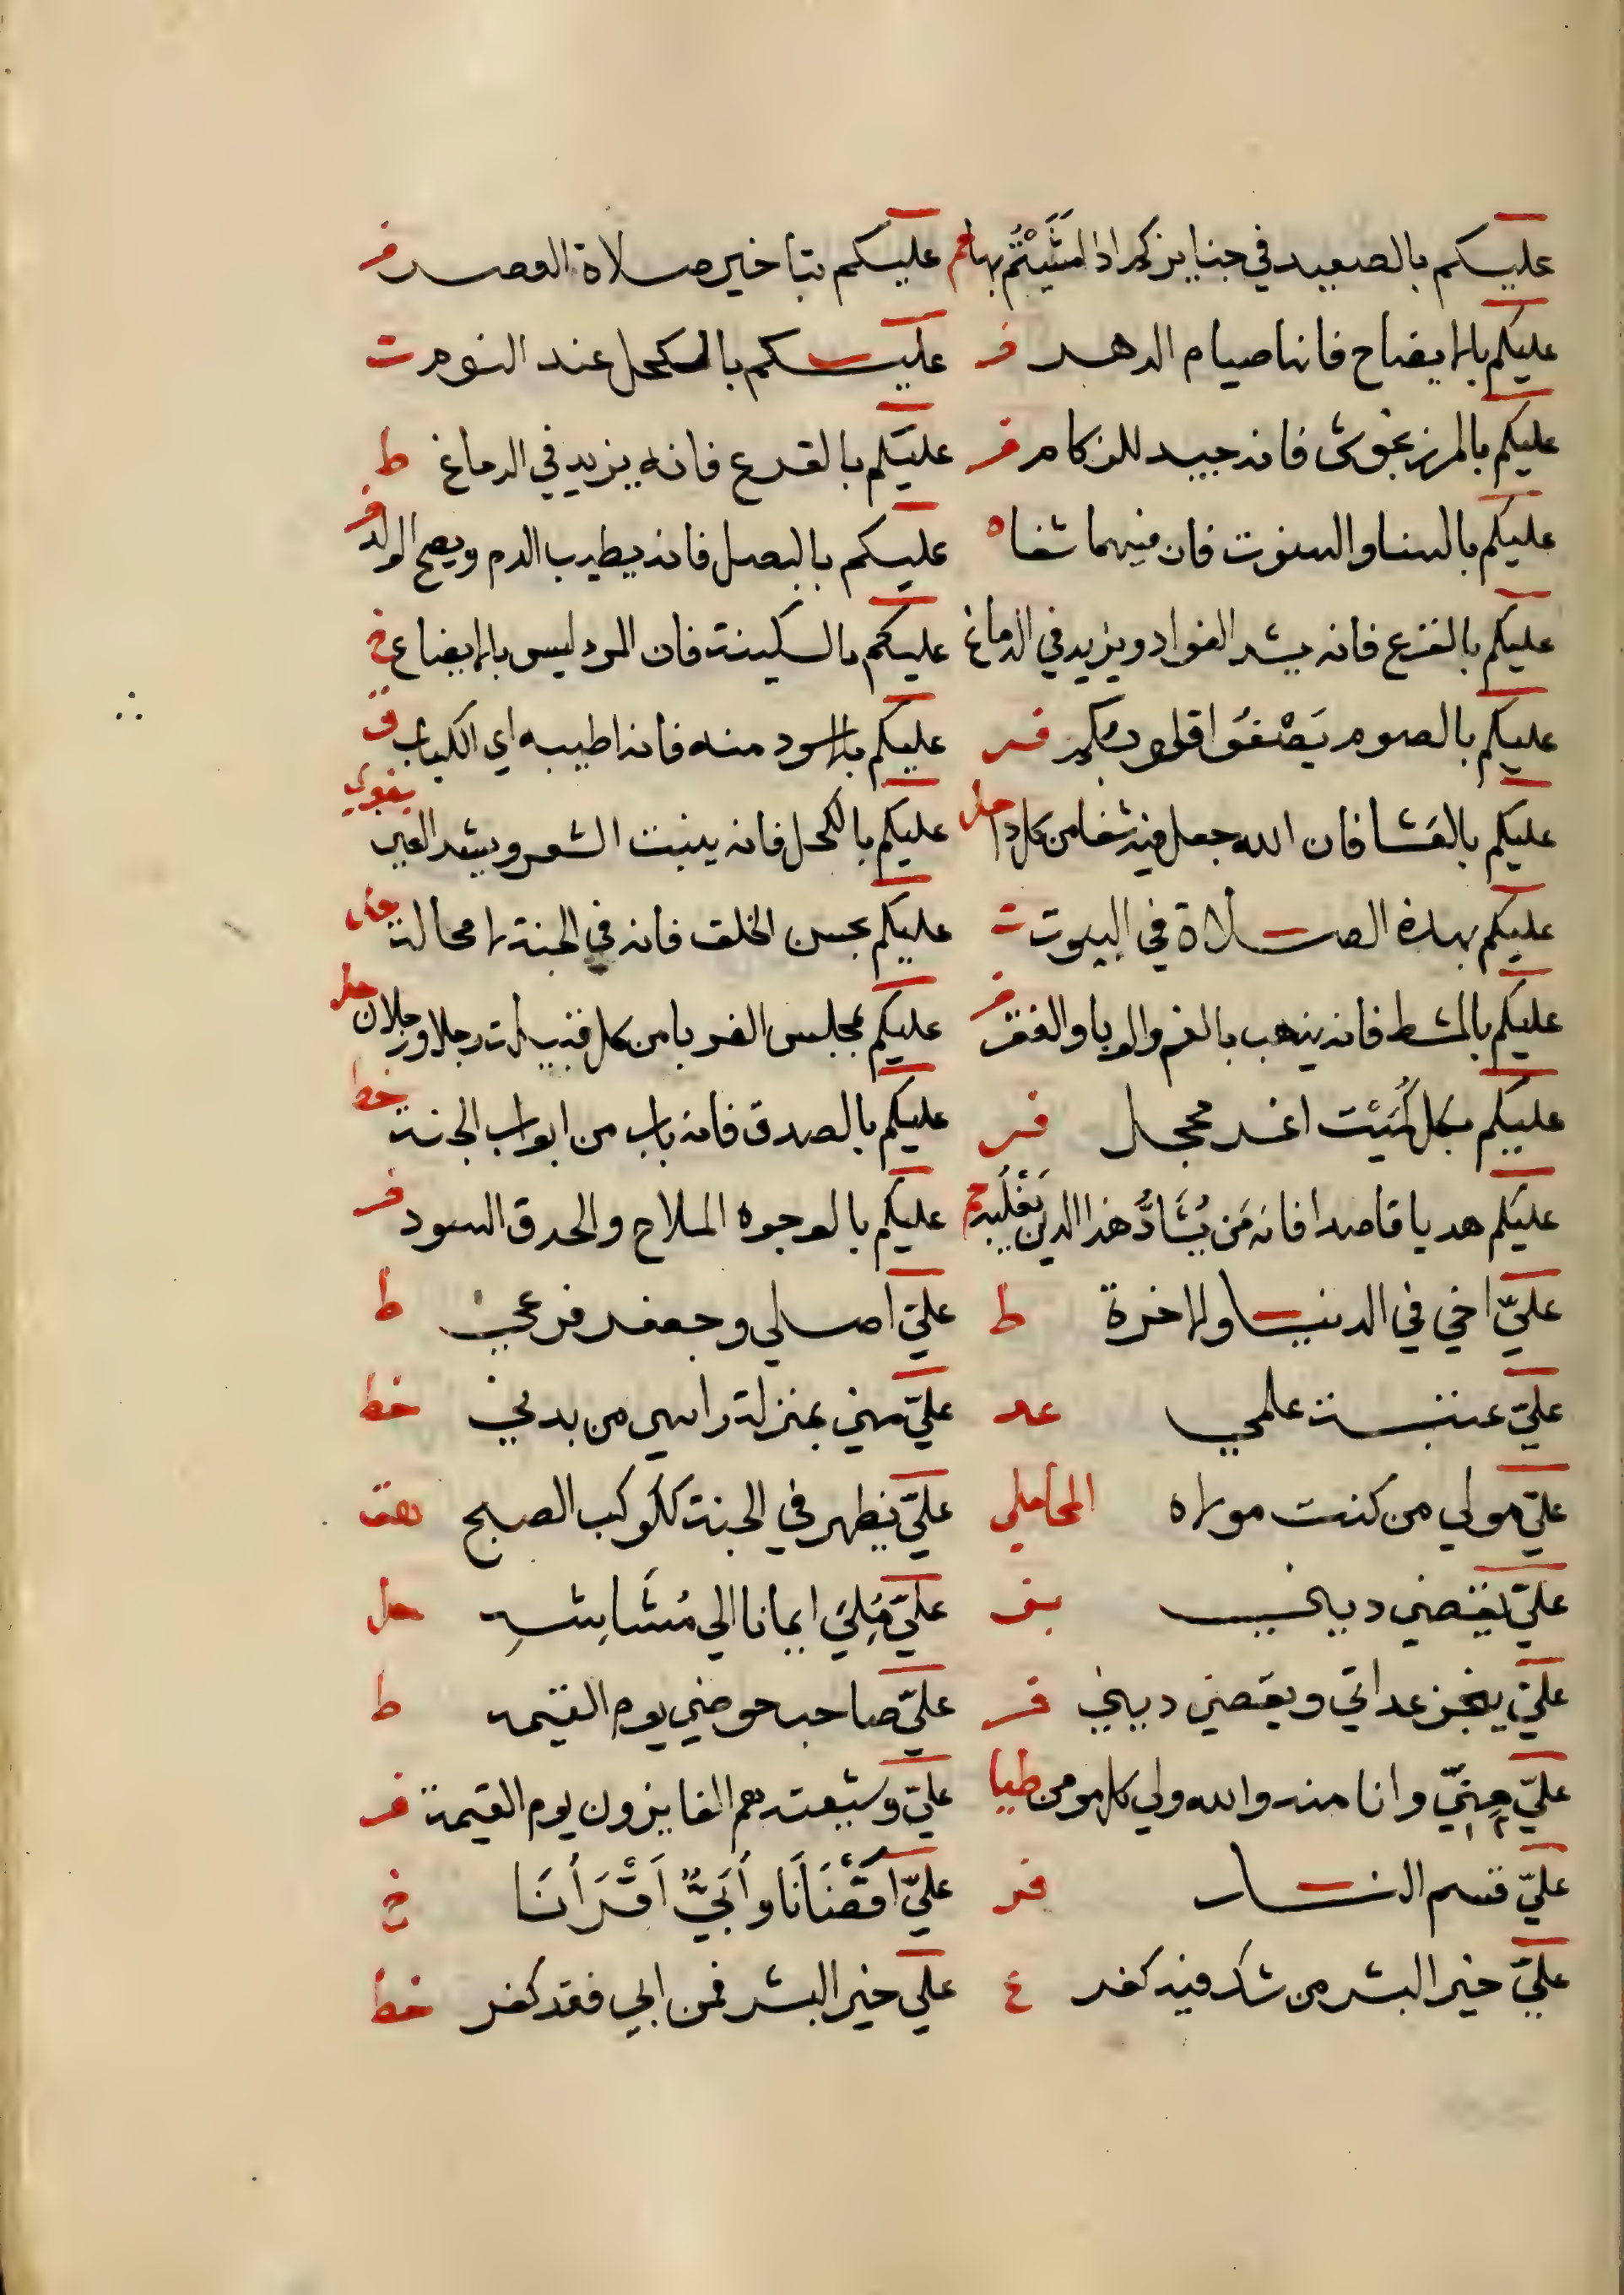 عليكم بالصعيد في جنايزكم اذا مَشَيْتُم بها حم عليكم بتاخير صلاة العصر فر
عليكم بالايضاح فانها صيام الدهر فر عليكم بالكحل عند النوم ت
عليكم بالمرزنجوش فانه جيد للزكام فر عليكم بالقرع فانه يزيد في الدماغ ط
عليكم بالسنا والسنوت فان فيهما شفا ه عليكم بالبصل فانه يطيب الدم ويصح الولد فر
عليكم بالقرع فانه يشد الفواد ويزيد في الدماغ عليكم بالسكينة فان البر ليس بالايضاع خ
عليكم بالصوم فر عليكم بالاسود منه فانه اطيبه اي الكباث ق
عليكم بالقثا فان الله جعل فيه شفا من كل دا حل عليكم بالكحل فانه ينبت الشعر ويشد العين بغوي
عليكم بهذه الصلاة في البيوت ت عليكم بحسن الخلق فانه في الجنة لا محالة
عليكم بالمشط فانه يذهب بالغم والوبا والفقر فر عليكم بمجلس الغربا من كل قبيلة رجلا ورجلان حل
عليكم بكل كُمَيْت اغر محجل فر عليكم بالصدق فانه باب من ابواب الجنة خط
عليكم هديا قاصدا فانه مَن يُشَادَّ هذا الدين يَغْلِبه حم عليكم بالوجوه الملاح والحدق السود فر
عليّ اخي في الدنيا والاخرة ط عليّ اصلي وجعفر فرعي ط
عليّ عيبة علمي عد عليّ مني بمنزلة راسي من بدني خط
عليّ مولي من كنت مولاه المحاملي عليّ يظهر في الجنة ككوكب الصبح هق
عليّ يقضي ديني بز عليّ مُلِئ ايمانا الي مُشَاشِهِ حل
عليّ ينجز عداتي ويقضي ديني فر عليّ صاحب حوضي يوم القيمة ط
عليّ مِنيّ وانا منه والله ولي كل مومن طيا عليّ وشيعته هم الفايزون يوم القيمة فر
عليّ قسيم النار فر عليّ اَقْضَانَا واُبَيٌّ اَقْرَأنَا خ
عليّ خير البشر من شك فيه كفر ع علي خير البشر فمن ابي فقد كفر خط